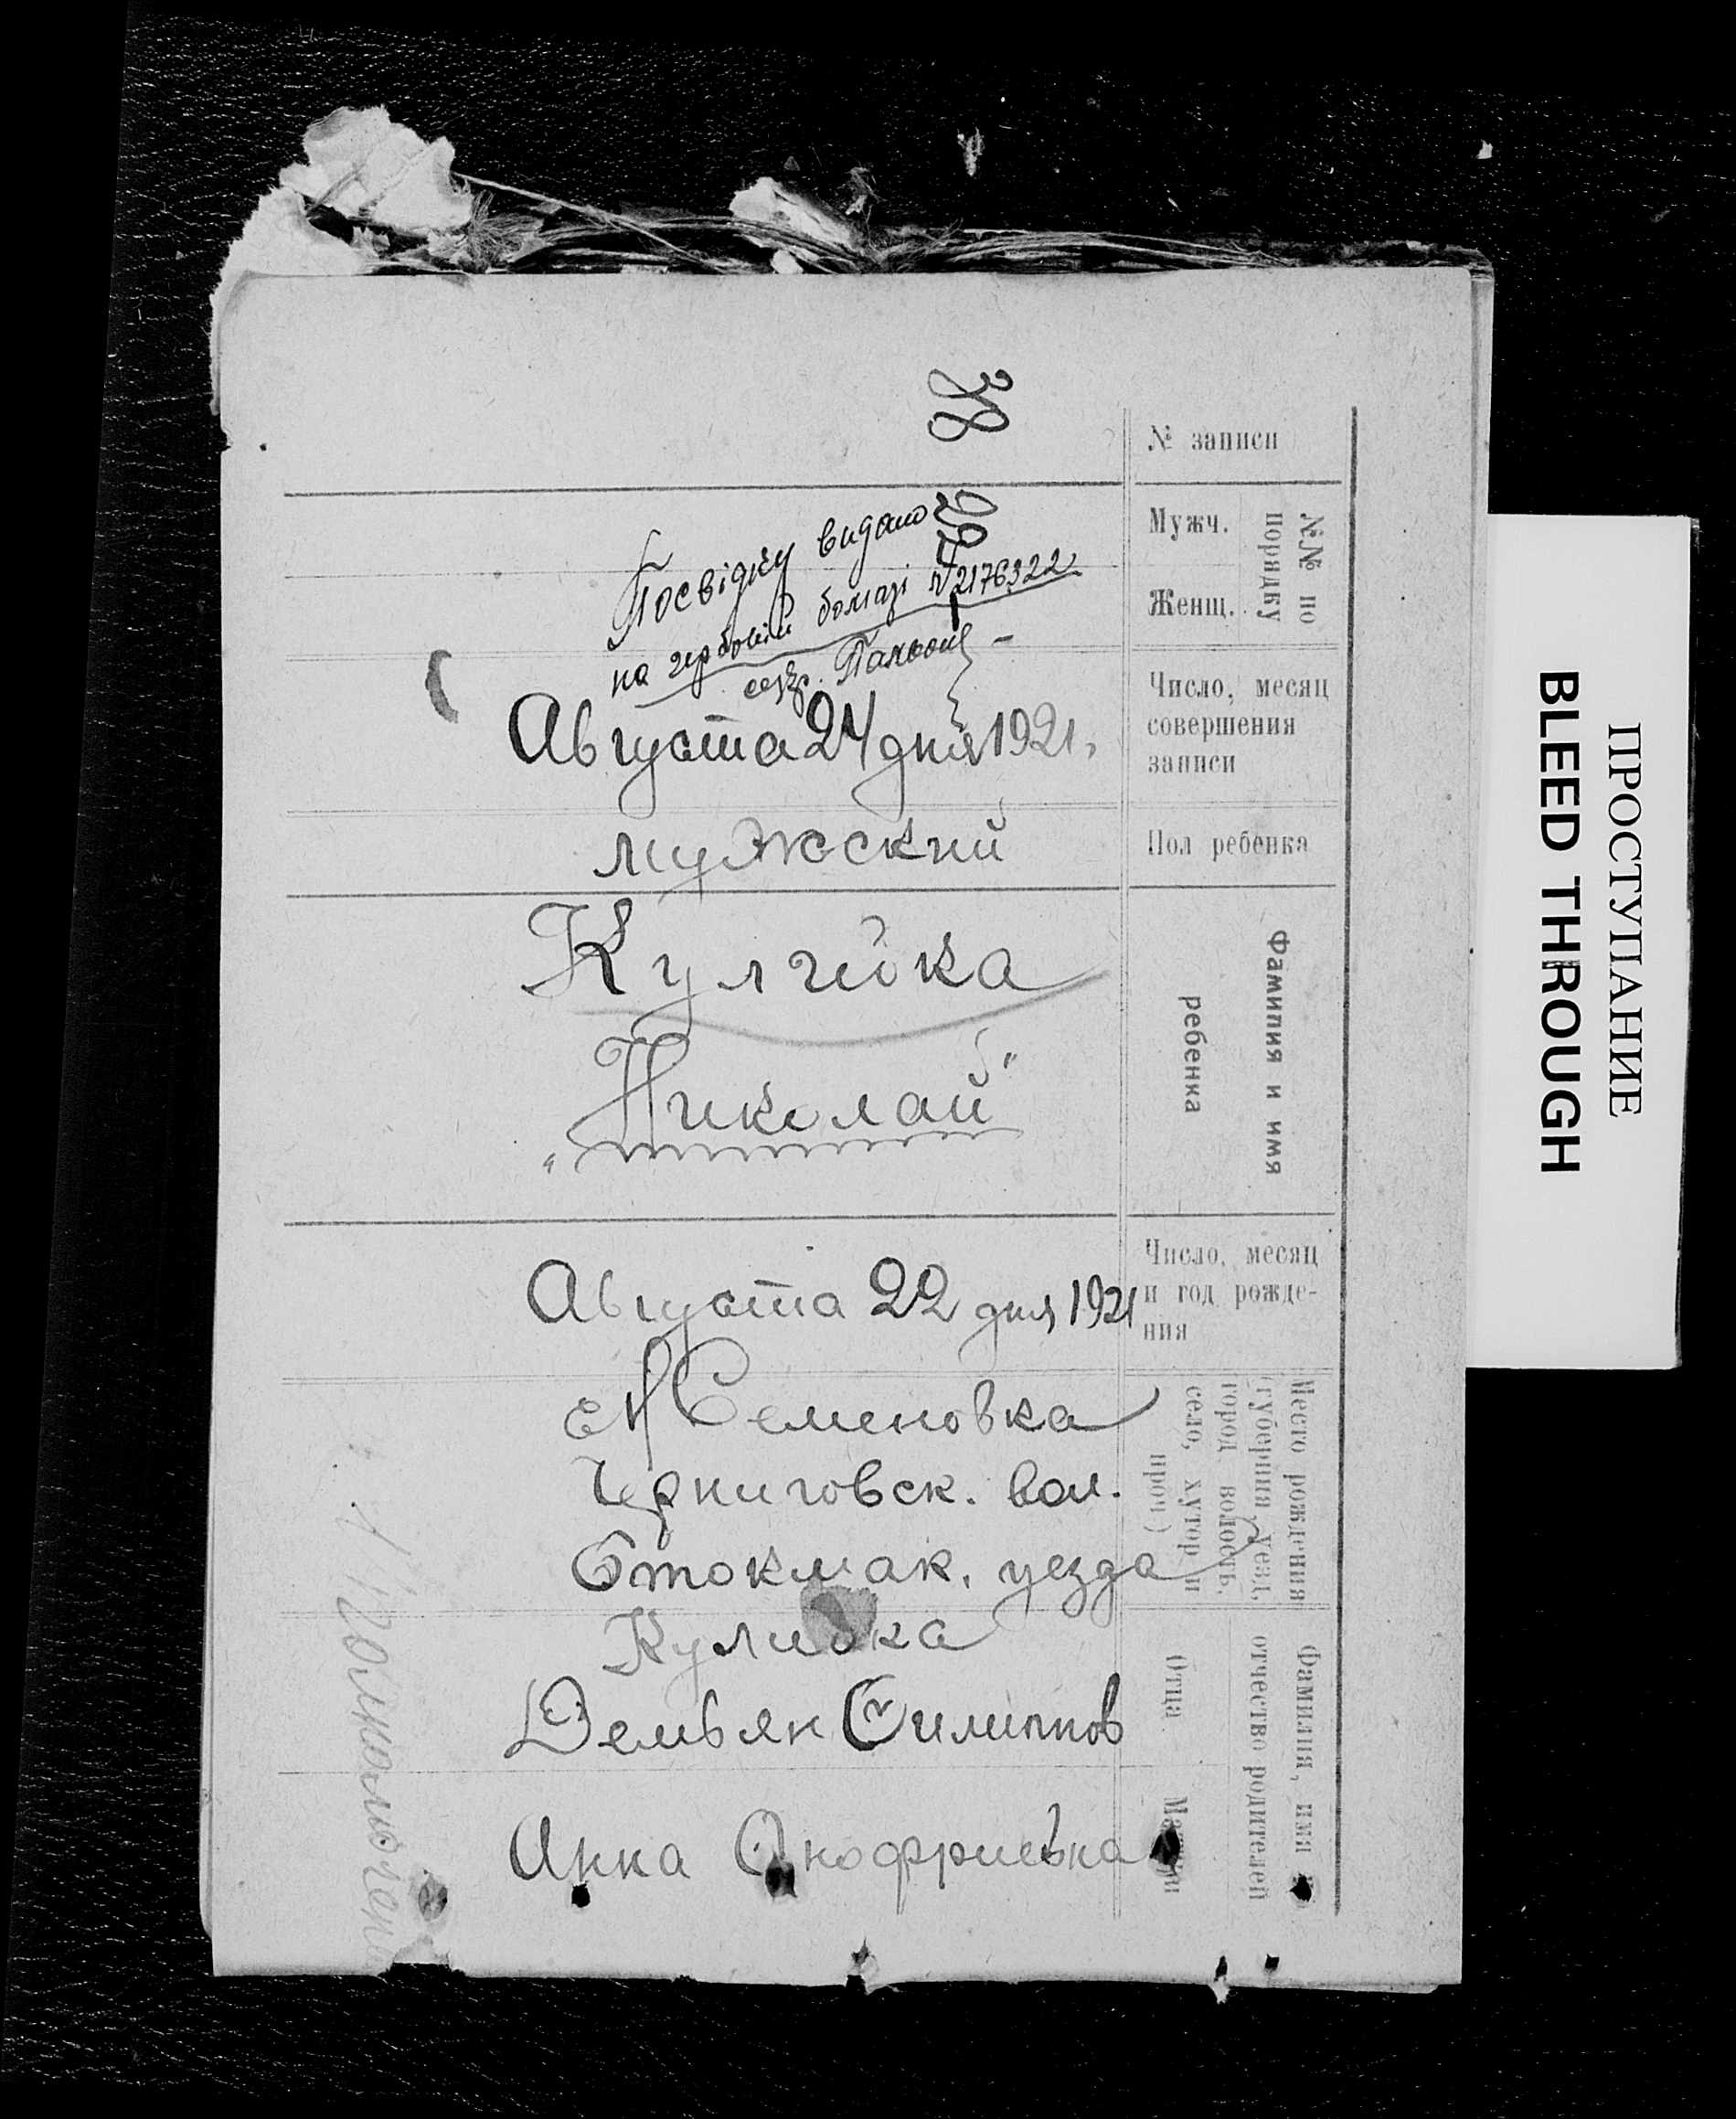 № записи
38
№№ по порядку
Мужч.
22
Женщ.
Посвідку видано
на гербовій бомазі №2176322
секр.
Число, месяц
совершения
записи
Августа 24 дня 1921.
Пол ребенка
мужский
Фамилия и имя
ребенка
Кулийка
"Николай"
Число, месяц
и год рожде-
ния
Августа 22 дня 1921
Место рождения
(губерния, уезд,
город, волость,
село, хутор и
проч)
Семеновка
Черниговск. вол.
Бтокмак. уезда
Фамилия, имя и
отчество родителей
Отца
Кулийка
Демьян Филиппов
Матери
Анна Онофриевна
ПРОСТУПАНИЕ
BLEED THROUGH